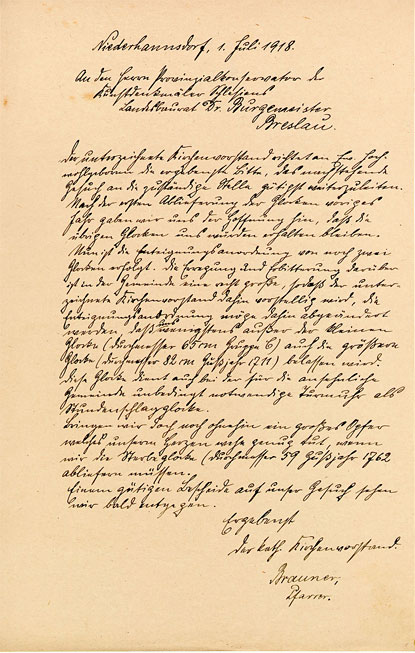 Niederhannsdorf, 1. Juli 1918.
An den Herrn Provinzialkonservator der
Kunstdenkmäler Schlesiens
Landesbaurat Dr. Burgemeister
Breslau.
Der unterzeichnete Kirchenvorstand richtet an Ew. Hoch-
wohlgeboren die ergebenste Bitte, das nachstehende
Gesuch an die zuständige Stelle gütigst weiterzuleiten.
Nach der ersten Ablieferung der Glocken voriges
Jahr gaben wir uns der Hoffnung hin, daß die
übrigen Glocken uns würden erhalten bleiben.
Nun ist die Enteignungsanordnung von noch zwei
Glocken erfolgt. Die Erregung und Erbitterung darüber
ist in der Gemeinde eine recht große, sodaß der unter-
zeichnete Kirchenvorstand dahin vorstellig wird, die
Enteignungsanordnung möge dahin abgeändert
werden, daß uns wenigstens außer der kleinen
Glocke (Durchmesser 65 cm Gruppe C) auch die größere
Glocke (Durchmesser 82 cm Gußjahr 1711) belassen wird.
Diese Glocke dient auch bei der für die ansehnliche
Gemeinde unbedingt notwendige Turmuhr als
Stundenschlagglocke.
Bringen wir doch noch ohnehin ein großes Opfer
welches unsern Herzen wehe genug tut, wenn
wir die Sterbeglocke (Durchmesser 59 Gußjahr 1762
abliefern müssen.
Einem gütigen Bescheide auf unser Gesuch sehen
wir bald entgegen.
Ergebenst
Der kath. Kirchenvorstand.
Brauner,
Pfarrer.